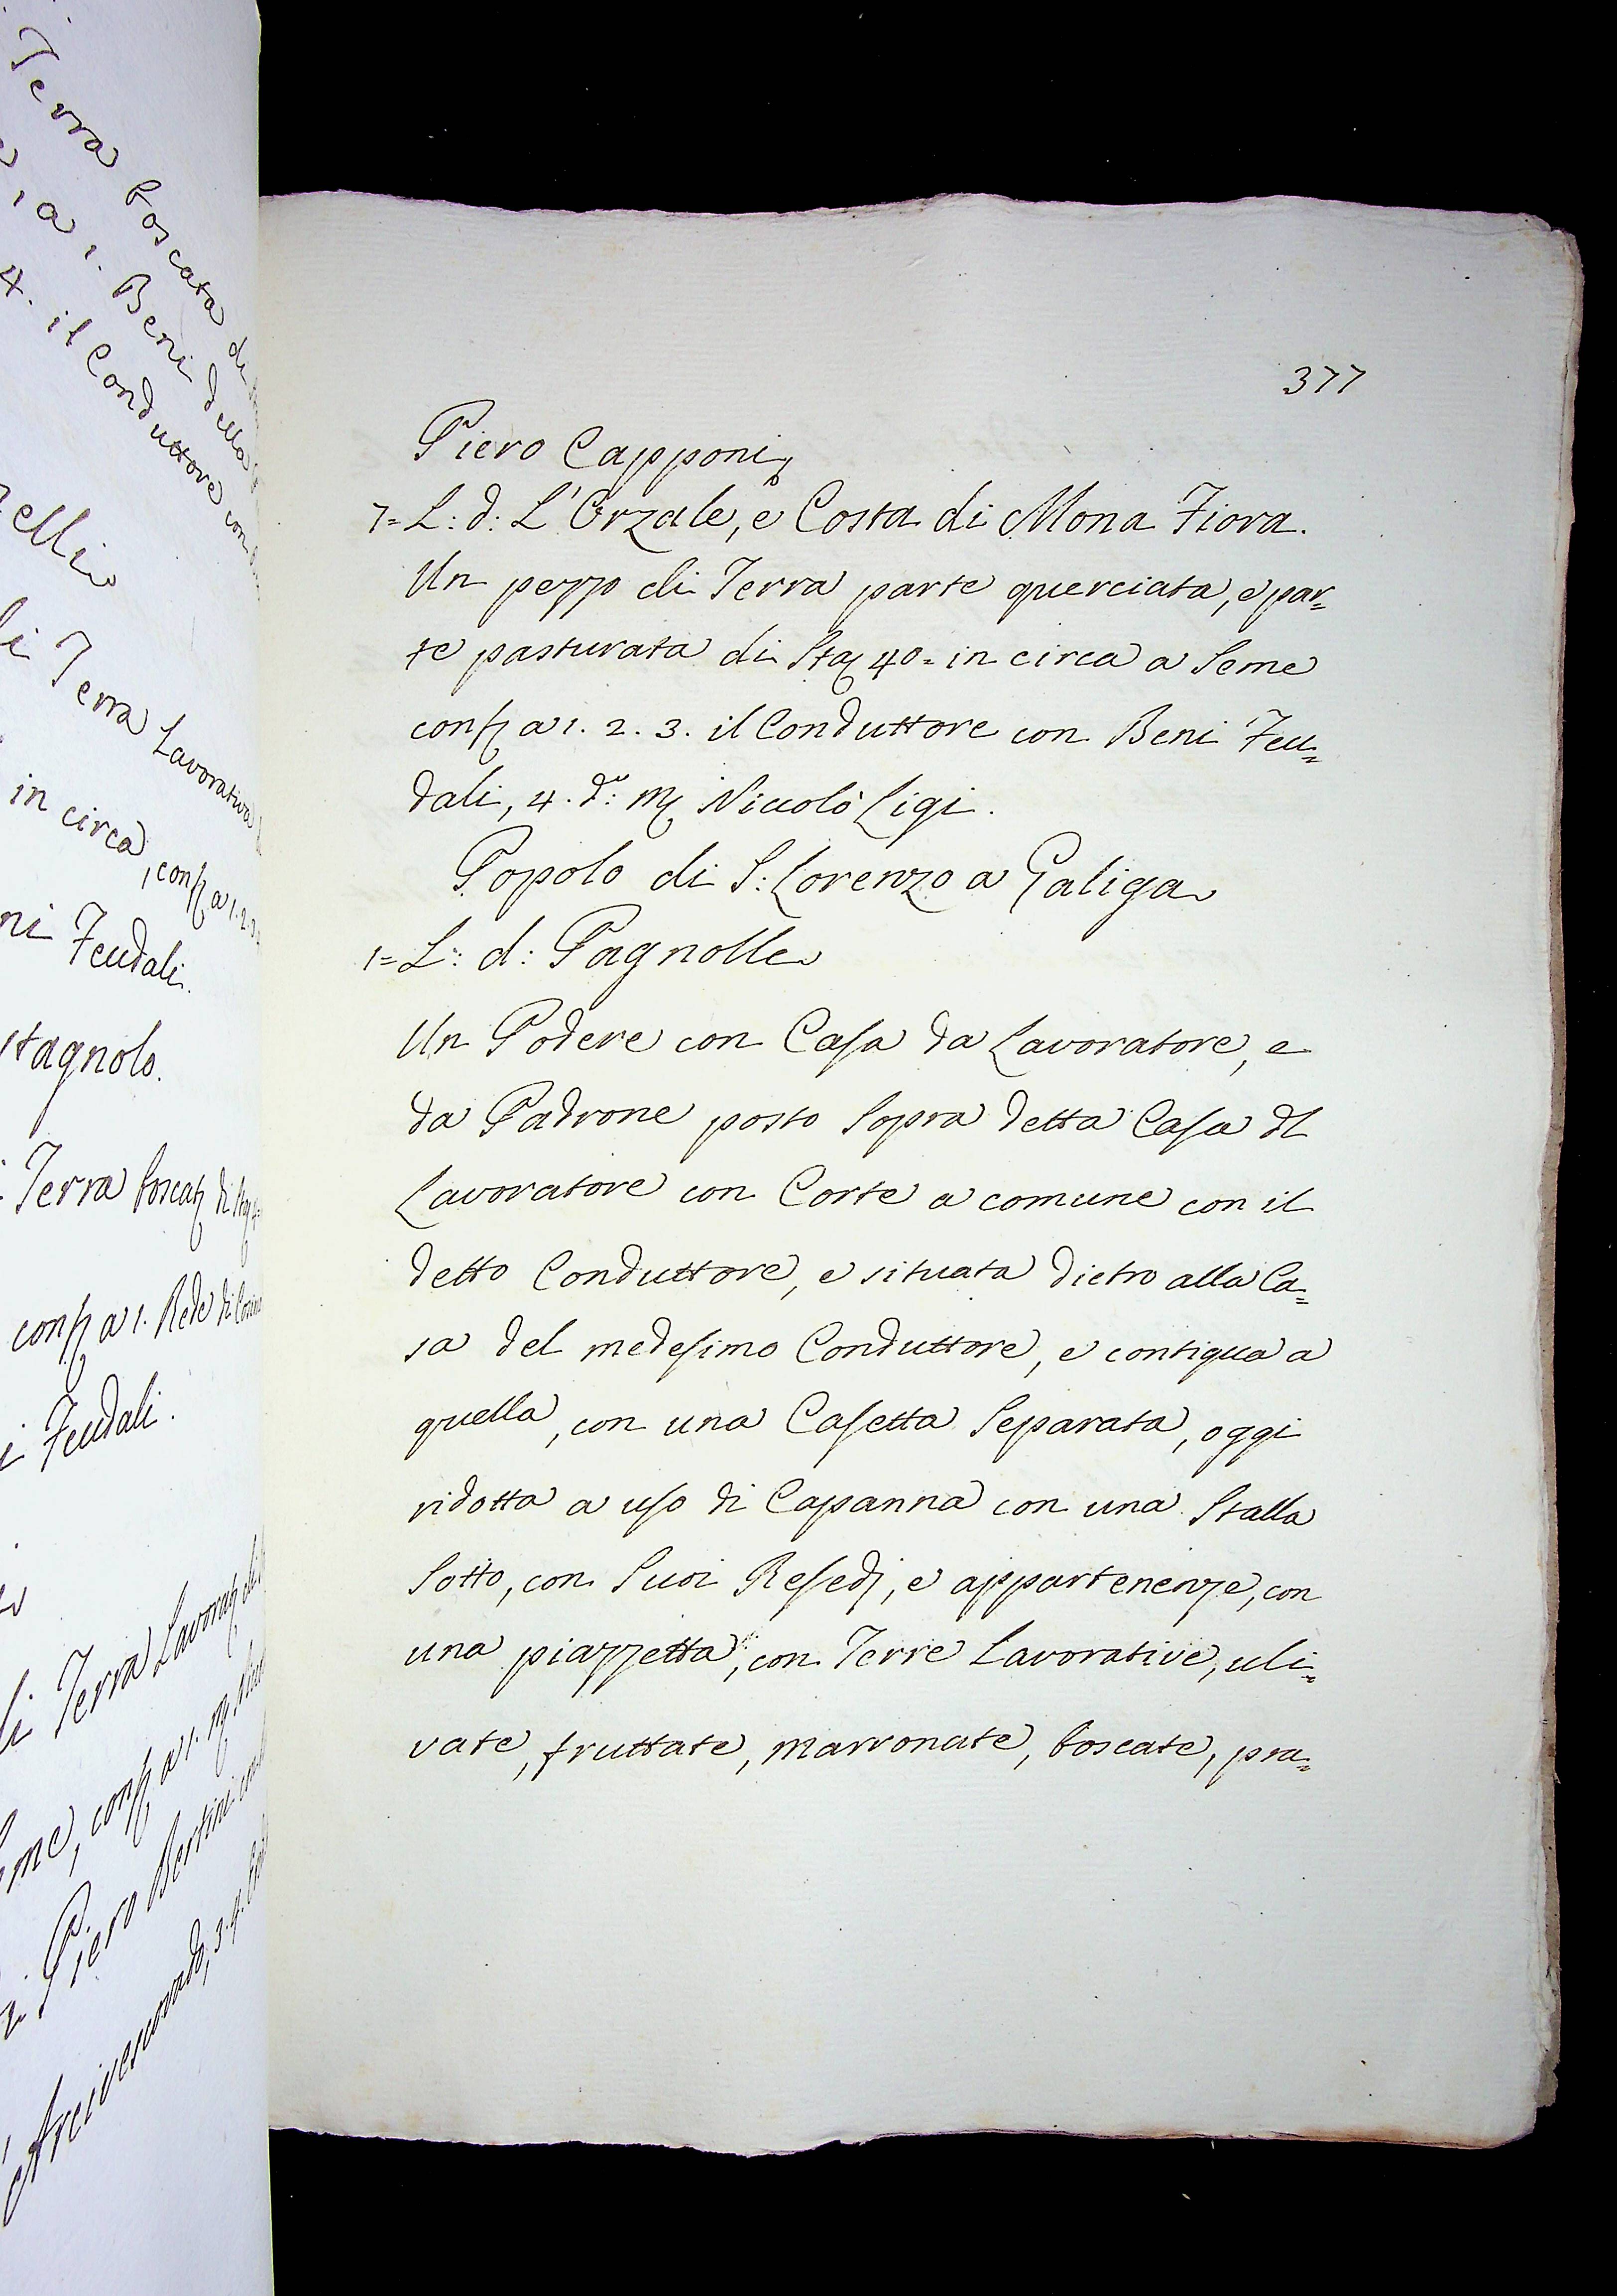 Terra boscata di
, a 1. Beni della
4. il Conduttore con
di Terra Lavorativa
in circa, conf. a 1. 2. 3.
Feudali.
Terra boscat. di Sta.
conf. a 1. Rede di Cosimo
Feudali.
di Terra Lavorat. di
conf. a 1. M.
Piero Bertini
Arcivescovado, 3. 4.
377
Piero Capponi
7= L: d: L'Orzale, e Costa di Mona Fiora.
Un pezzo di Terra parte querciata, e par=
te pasturata di Sta. 40= in circa a Seme
conf. a 1. 2. 3. il Conduttore con Beni Feu=
dali, 4. d.º: M. Niccolò Ligi.
Popolo di S: Lorenzo a Galiga
1= L: d: Pagnolle
Un Podere con Casa da Lavoratore, e
da Padrone posto Sopra detta Casa dl
Lavoratore con Corte a comune con il
detto Conduttore, e situata dietro alla Ca=
sa del medesimo Conduttore, e contigua a
quella, con una Casetta Separata, oggi
ridotta a uso di Capanna con una Stalla
Sotto, con Suoi Resedj, e appartenenze, con
una piazzetta, con Terre Lavorative, uli=
vate, fruttate, marronate, boscate, pra=